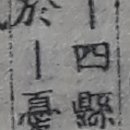 ｜四縣
於｜憂